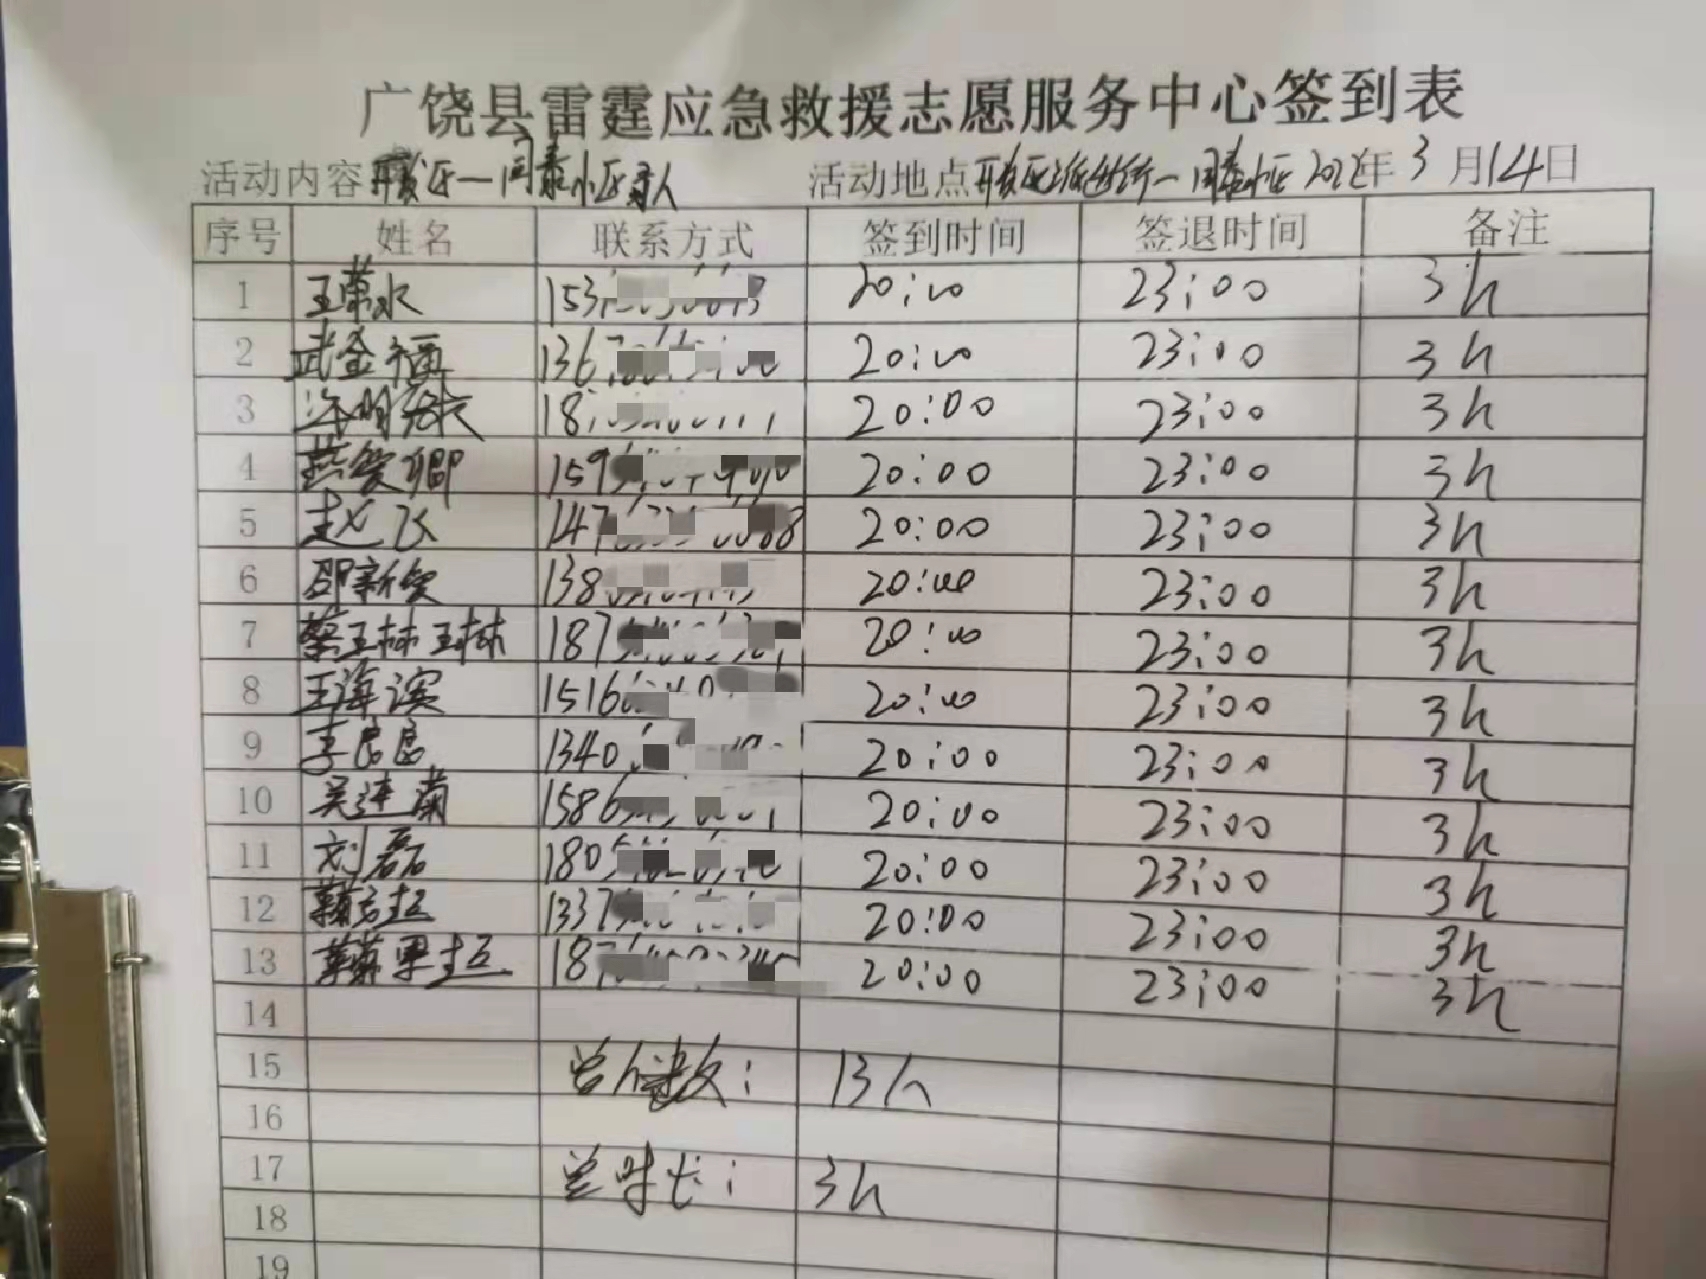 广饶县雷霆应急救援志愿服务中心签到表
活动内容 开发区一同泰小区寻人 活动地点 开发区派出所一同泰小区 2022年3月14日
序号 姓名 联系方式 签到时间 签退时间 备注
1 王荣水 153 20:00 23:00 3h
2 武金福 136 20:00 23:00 3h
3 20:00 23:00 3h
4 燕爱卿 159 20:00 23:00 3h
5 赵飞 147 20:00 23:00 3h
6 邵新安 138 20:00 23:00 3h
7 187 20:00 23:00 3h
8 王海滨 1516 20:00 23:00 3h
9 李良良 1340 20:00 23:00 3h
10 吴连兰 1586 20:00 23:00 3h
11 刘磊 1805 20:00 23:00 3h
12 1337 20:00 23:00 3h
13 187 20:00 23:00 3h
14
15 总人数: 13人
16
17 总时长: 3h
18
19